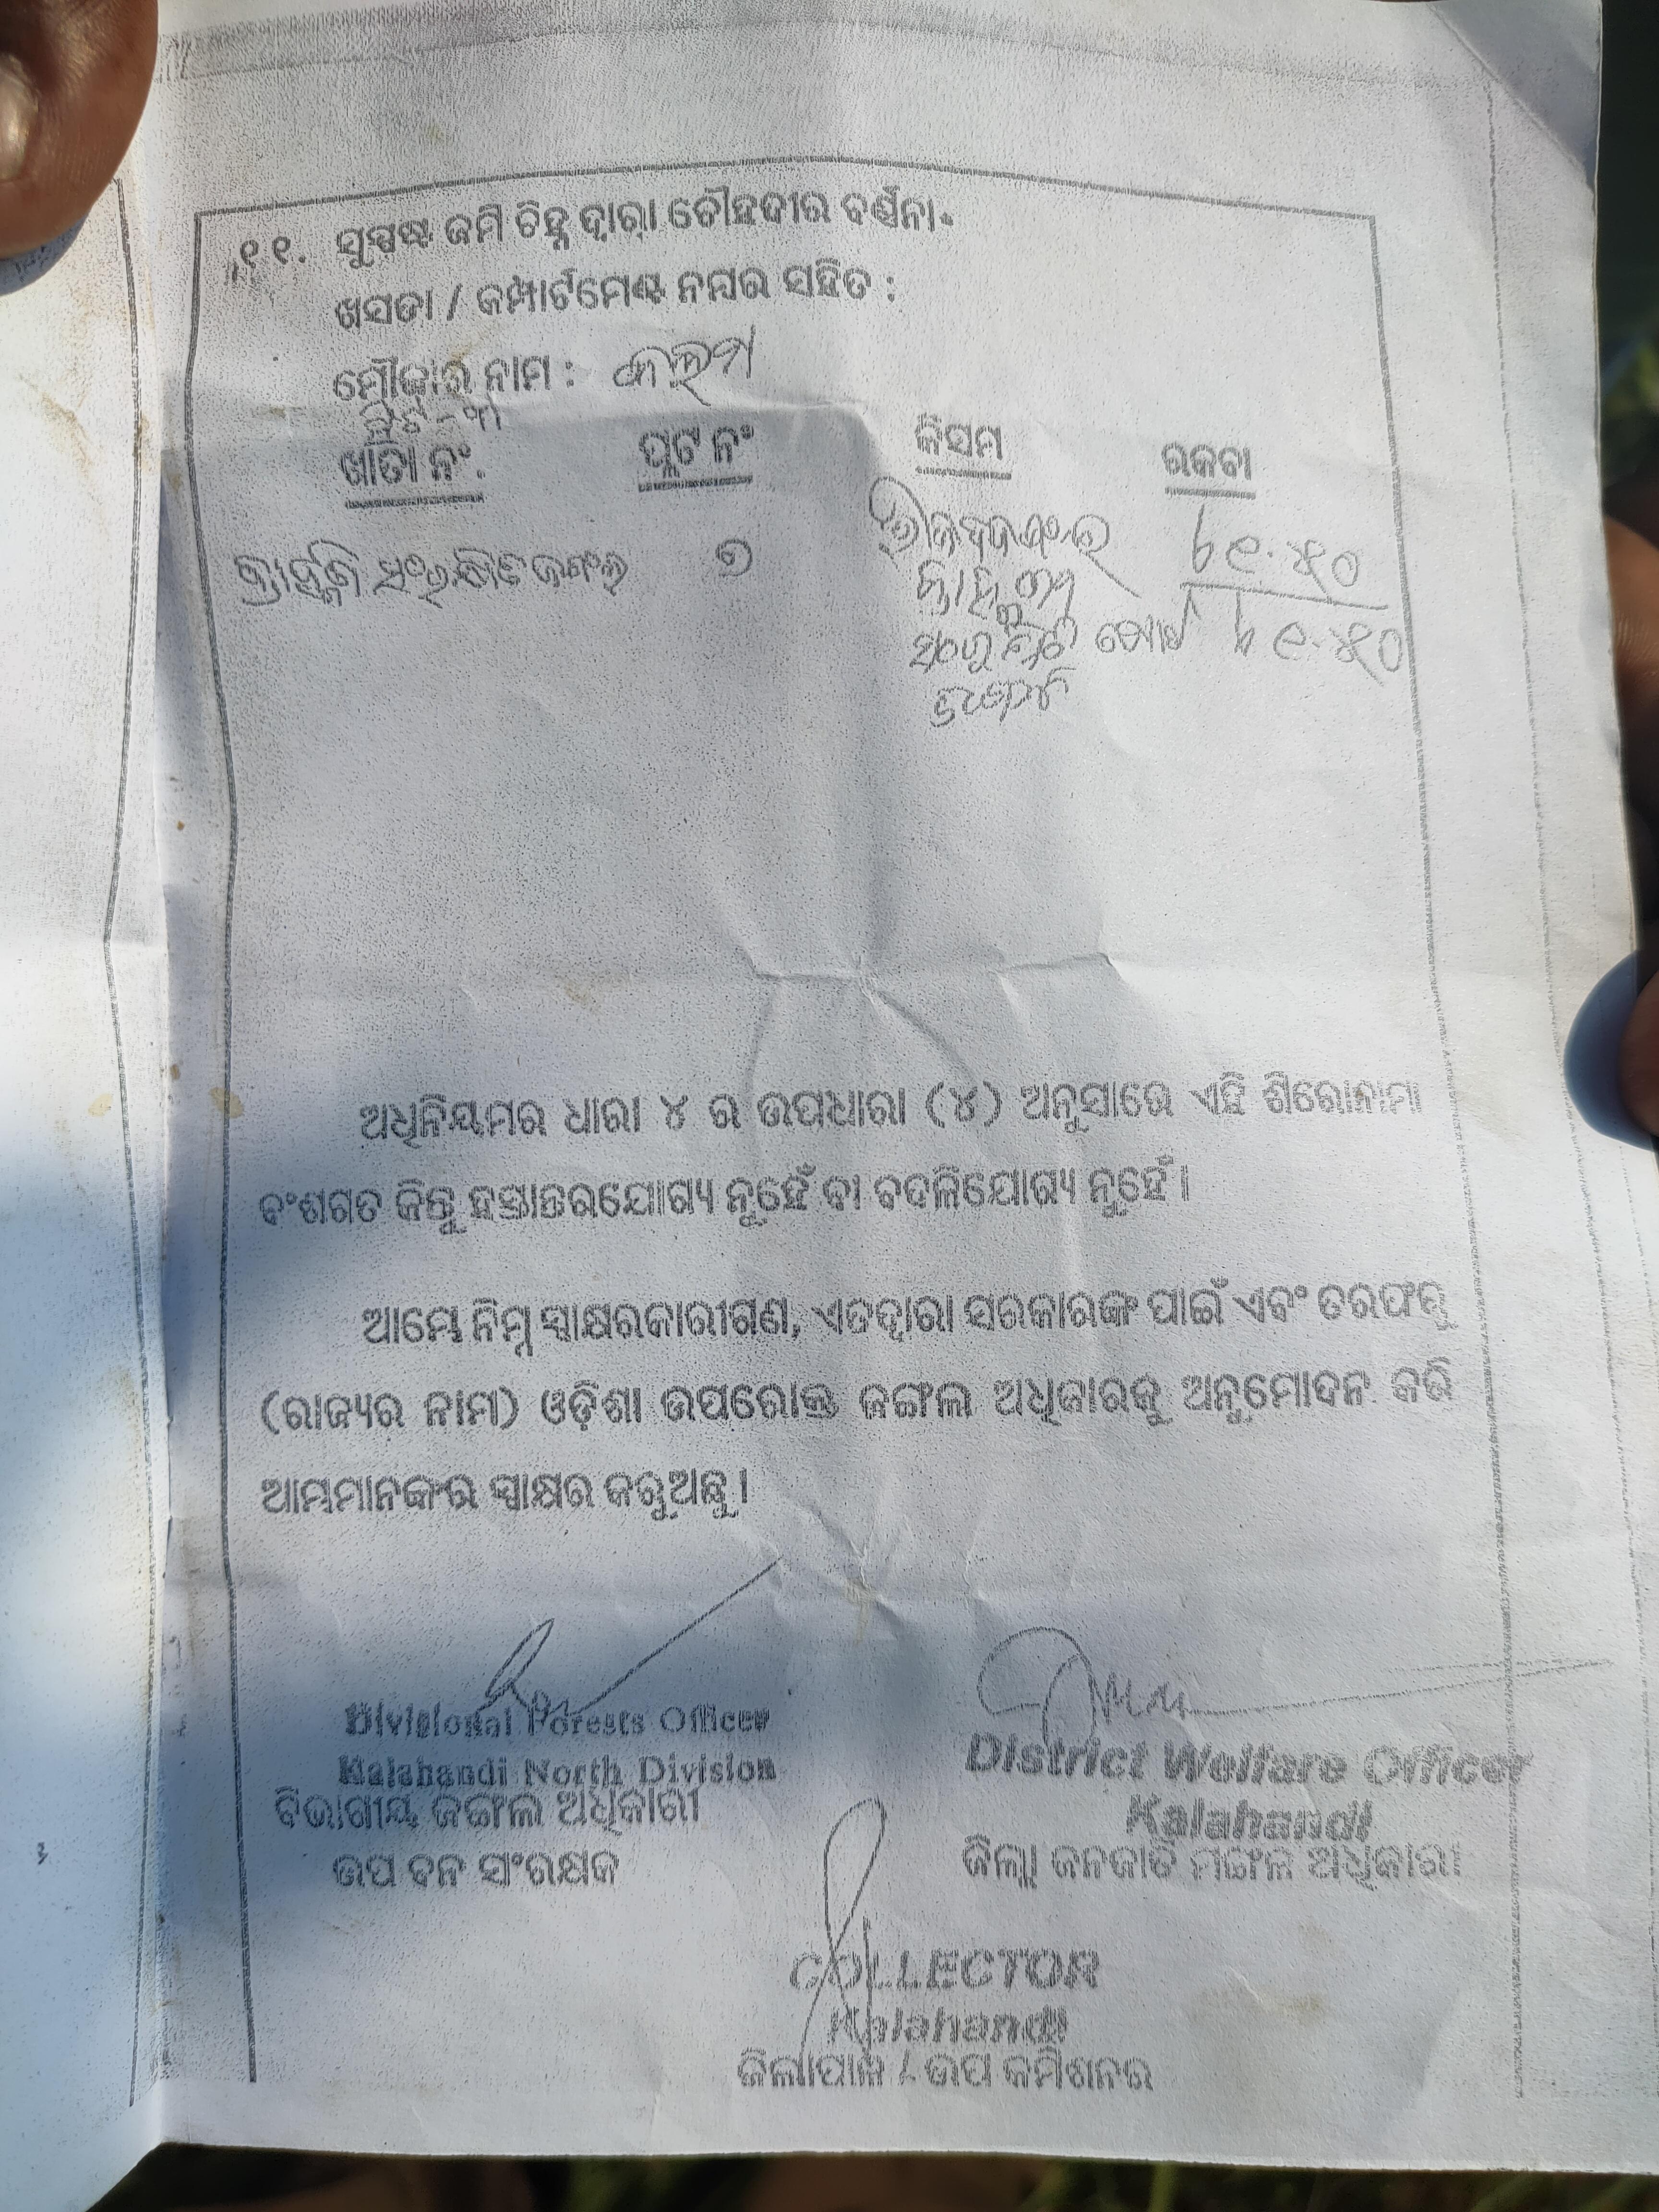 ୧୧. ସୁସ୍ପଷ୍ଟ ଜମି ଚିହ୍ନ ଦ୍ଵାରା ଚୌହଦୀର ବର୍ଣ୍ଣନା.
ଖସଡା / କମ୍ପାର୍ଟମେଣ୍ଟ ନମ୍ବର ସହିତ :
ମୌଜାର ନାମ : କଲମ
ଖାତା ନଂ. ପ୍ଲଟ ନଂ କିସମ ରକବା
ସଂରକ୍ଷିତ ଜଙ୍ଗଲ ୭ ୮୧.୪୦
ସଂରକ୍ଷିତ ମୋଟ ୮୧.୪୦
ଅଧିନିୟମର ଧାରା ୪ ର ଉପଧାରା (୪) ଅନୁସାରେ ଏହି ଶିରୋନାମା
ବଂଶଗତ କିନ୍ତୁ ହସ୍ତାନ୍ତରଯୋଗ୍ୟ ନୁହେଁ ବା ବଦଳିଯୋଗ୍ୟ ନୁହେଁ।
ଆମ୍ଭେ ନିମ୍ନ ସ୍ୱାକ୍ଷରକାରୀଗଣ, ଏତଦ୍ୱାରା ସରକାରଙ୍କ ପାଇଁ ଏବଂ ତରଫରୁ
(ରାଜ୍ୟର ନାମ) ଓଡ଼ିଶା ଉପରୋକ୍ତ ଜଙ୍ଗଲ ଅଧିକାରକୁ ଅନୁମୋଦନ କରି
ଆମ୍ଭମାନଙ୍କର ସ୍ୱାକ୍ଷର କରୁଅଛୁ।
Divisional Forests Officer
Kalahandi North Division
ବିଭାଗୀୟ ଜଙ୍ଗଲ ଅଧିକାରୀ
ଉପ ବନ ସଂରକ୍ଷକ
District Welfare Officer
Kalahandi
ଜିଲ୍ଲା ଜନଜାତି ମଙ୍ଗଳ ଅଧିକାରୀ
COLLECTOR
Kalahandi
ଜିଲ୍ଲାପାଳ / ଉପ କମିଶନର